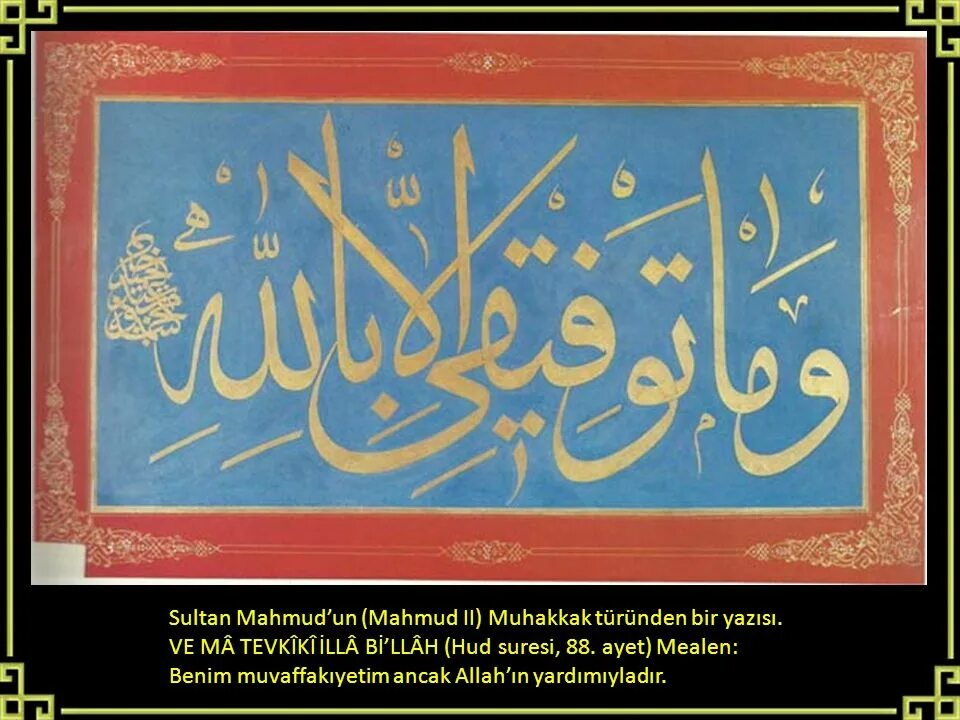 وَمَا تَوْفِيقِى اِلَّا بِاللّٰهِ
Sultan Mahmud’un (Mahmud II) Muhakkak türünden bir yazısı.
VE MÂ TEVKÎKÎ İLLÂ Bİ’LLÂH (Hud suresi, 88. ayet) Mealen:
Benim muvaffakıyetim ancak Allah’ın yardımıyladır.